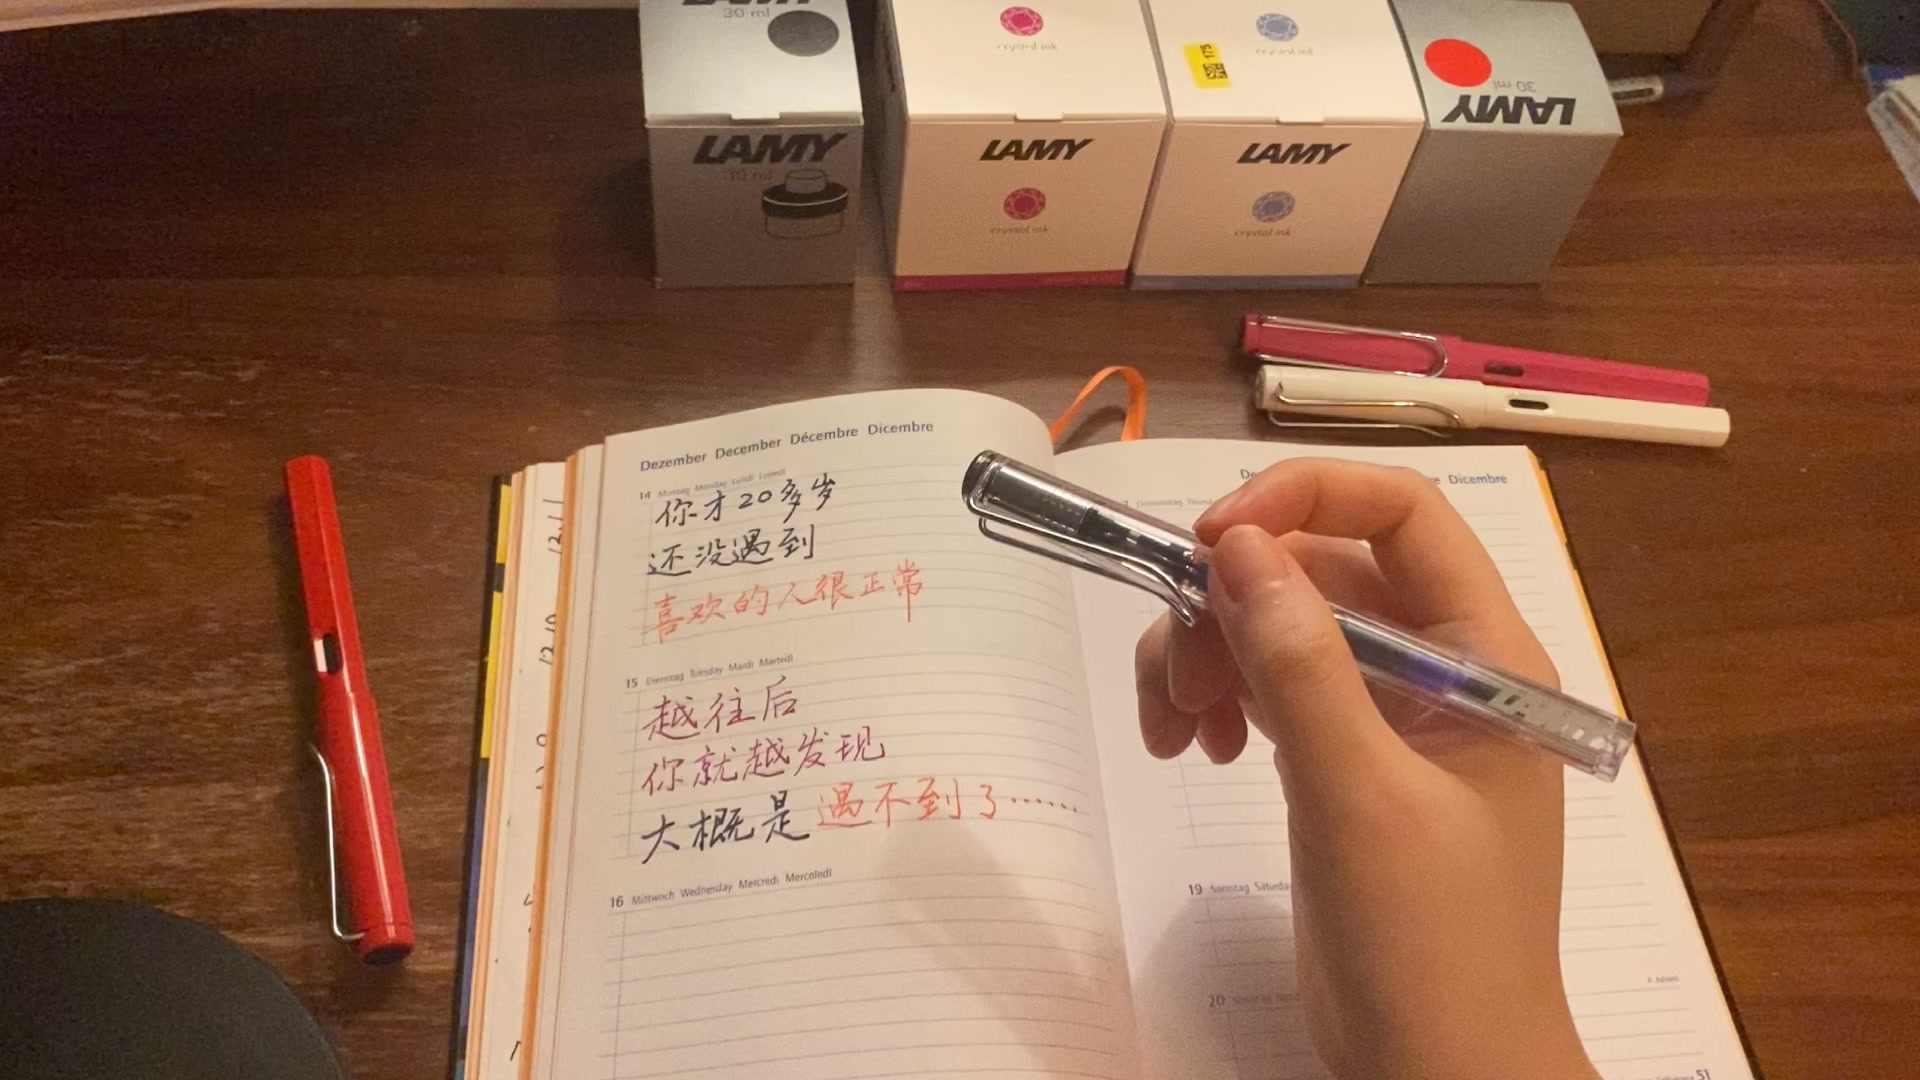 LAMY
30 ml
LAMY
30 ml
crystal ink
LAMY
crystal ink
175
crystal ink
LAMY
crystal ink
30 ml
LAMY
Dezember December Décembre Dicembre
14 Montag Monday Lundi Lunedì
你才20多岁
还没遇到
喜欢的人很正常
15 Dienstag Tuesday Mardi Martedì
越往后
你就越发现
大概是遇不到了……
16 Mittwoch Wednesday Mercredi Mercoledì
Dicembre
LAMY
19 Samstag
20
4. Advent
51